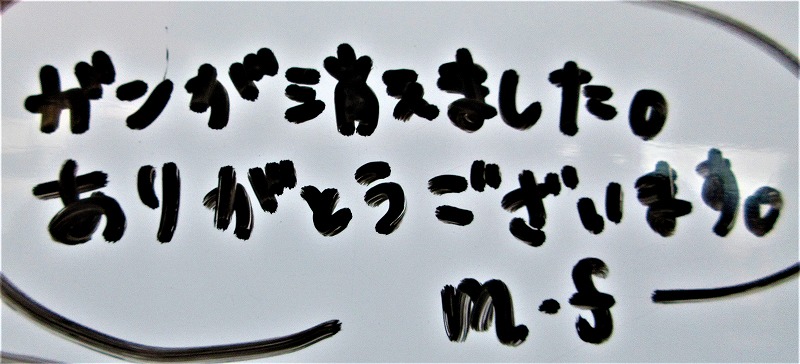 ガンが消えました。
ありがとうございます。
m.f